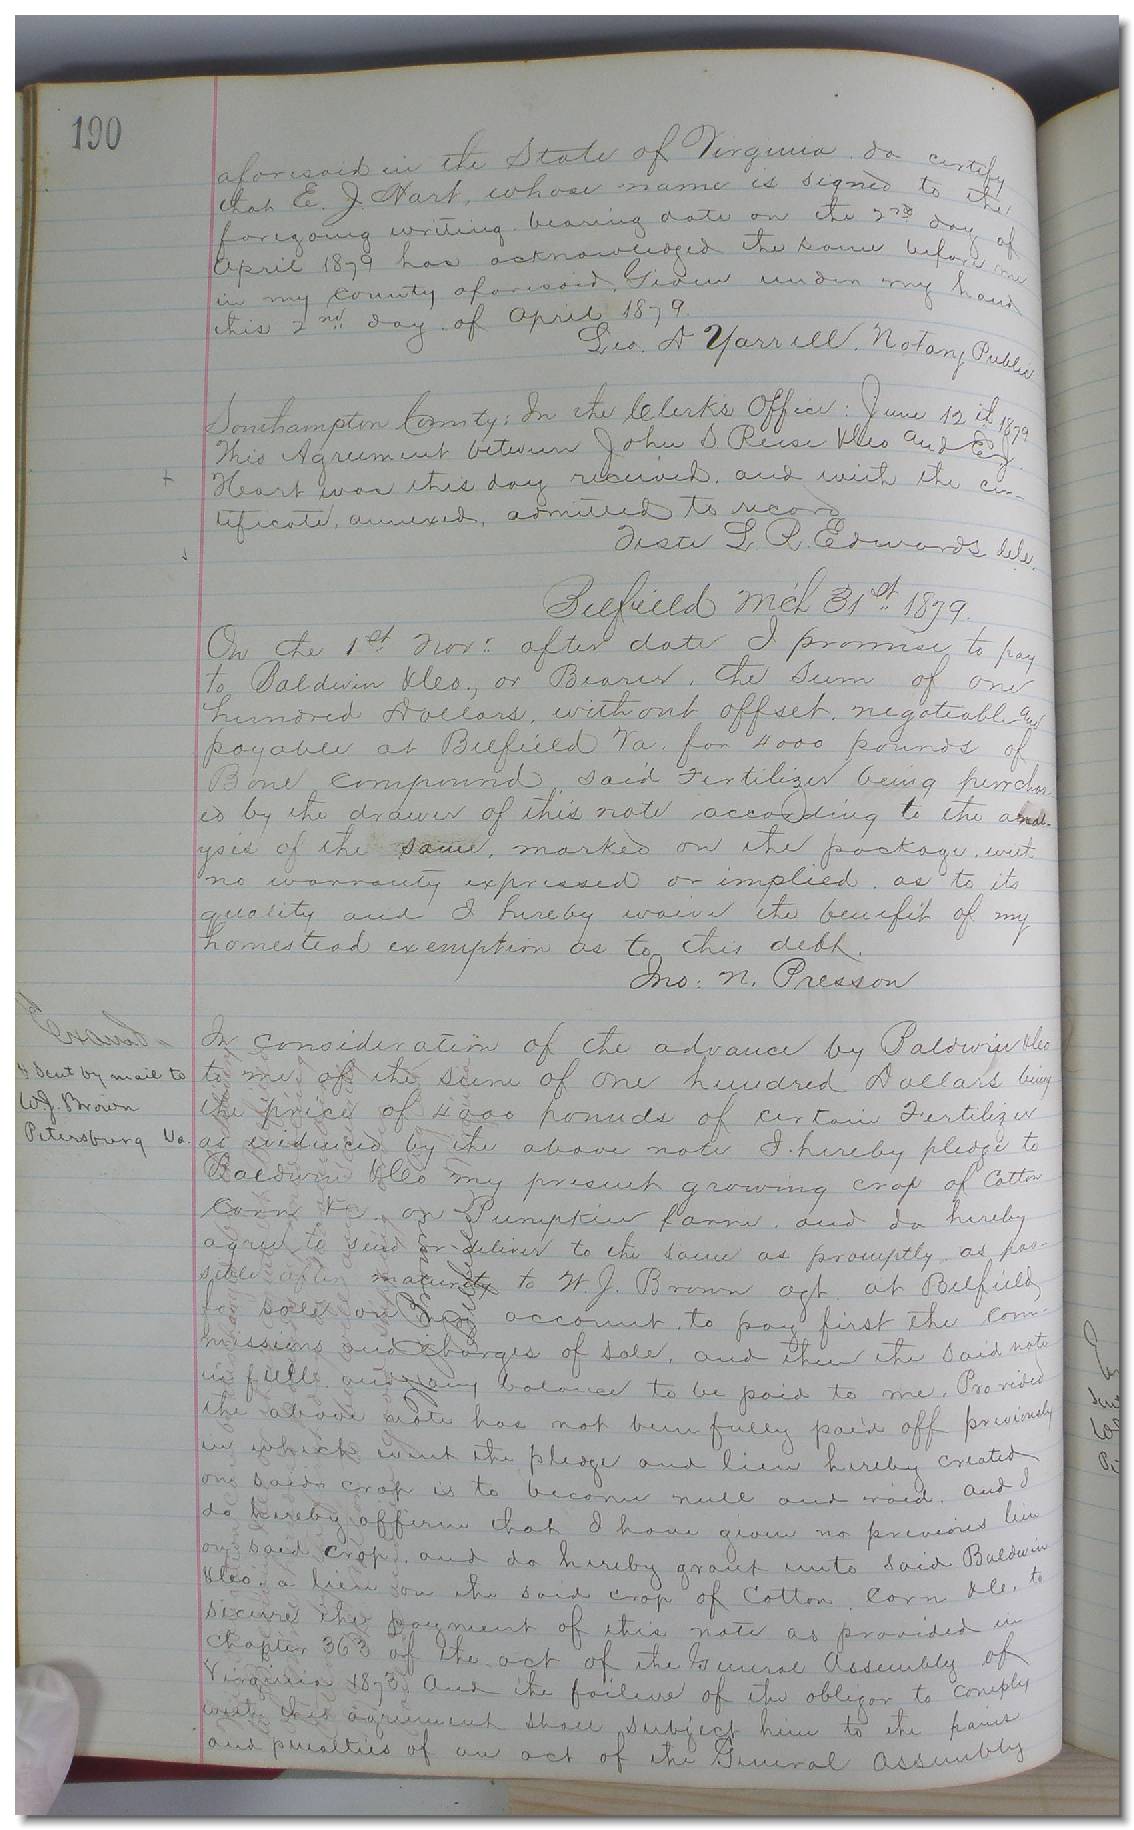 190
aforesaid in the State of Virginia do certify
that E. J. Hart, whose name is signed to the
foregoing writing bearing date on the 2nd day of
April 1879 has acknowledged the same before me
in my county aforesaid, Given under my hand
this 2nd day of April 1879.
Geo. A Yarrell. Notary Public
Southampton County: In the Clerk's Office: June 12th 1879
This Agreement between John D Reese &Co and E J.
Heart was this day received, and with the cer-
tificate, annexed, admitted to record
Teste L. R. Edwards
Belfield Mch 31st 1879.
On the 1st Nov: after date I promise to pay
to Baldwin &Co., or Bearer, the sum of one
hundred Dollars, without offset, negotiable and
payable at Belfield Va. for 4000 pounds of
Bone compound, said Fertilizer being purchas-
ed by the drawer of this note according to the anal-
ysis of the same, marked on the package, with
no warranty expressed or implied, as to its
quality and I hereby waive the benefit of my
homestead exemption as to this debt.
Jno. N. Presson
In consideration of the advance by Baldwin &Co
to me of the sum of one hundred Dollars being
the price of 4000 pounds of certain Fertilizer
as evidenced by the above note I hereby pledge to
Baldwin &Co my present growing crop of Cotton
Corn &C. on Pumpkin farm, and do hereby
agree to send or deliver to the same as promptly as pos-
sible after maturity to W. J. Brown agt. at Belfield
for sale on my account, to pay first the com-
missions and charges of sale, and then the said note
in full, and any balance to be paid to me, Provided
the above note has not been fully paid off previously
in which event the pledge and lien hereby created
on said crop is to become null and void, and I
do hereby affirm that I have given no previous lien
on said crop, and do hereby grant unto said Baldwin
&Co, a lien on the said crop of Cotton, Corn &C. to
secure the payment of this note as provided in
Chapter 363 of the act of the General Assembly of
Virginia 1873. And the failure of the obligor to comply
with this agreement shall subject him to the pains
and penalties of an act of the General Assembly
Examd.
& Sent by mail to
W.J. Brown
Petersburg Va.